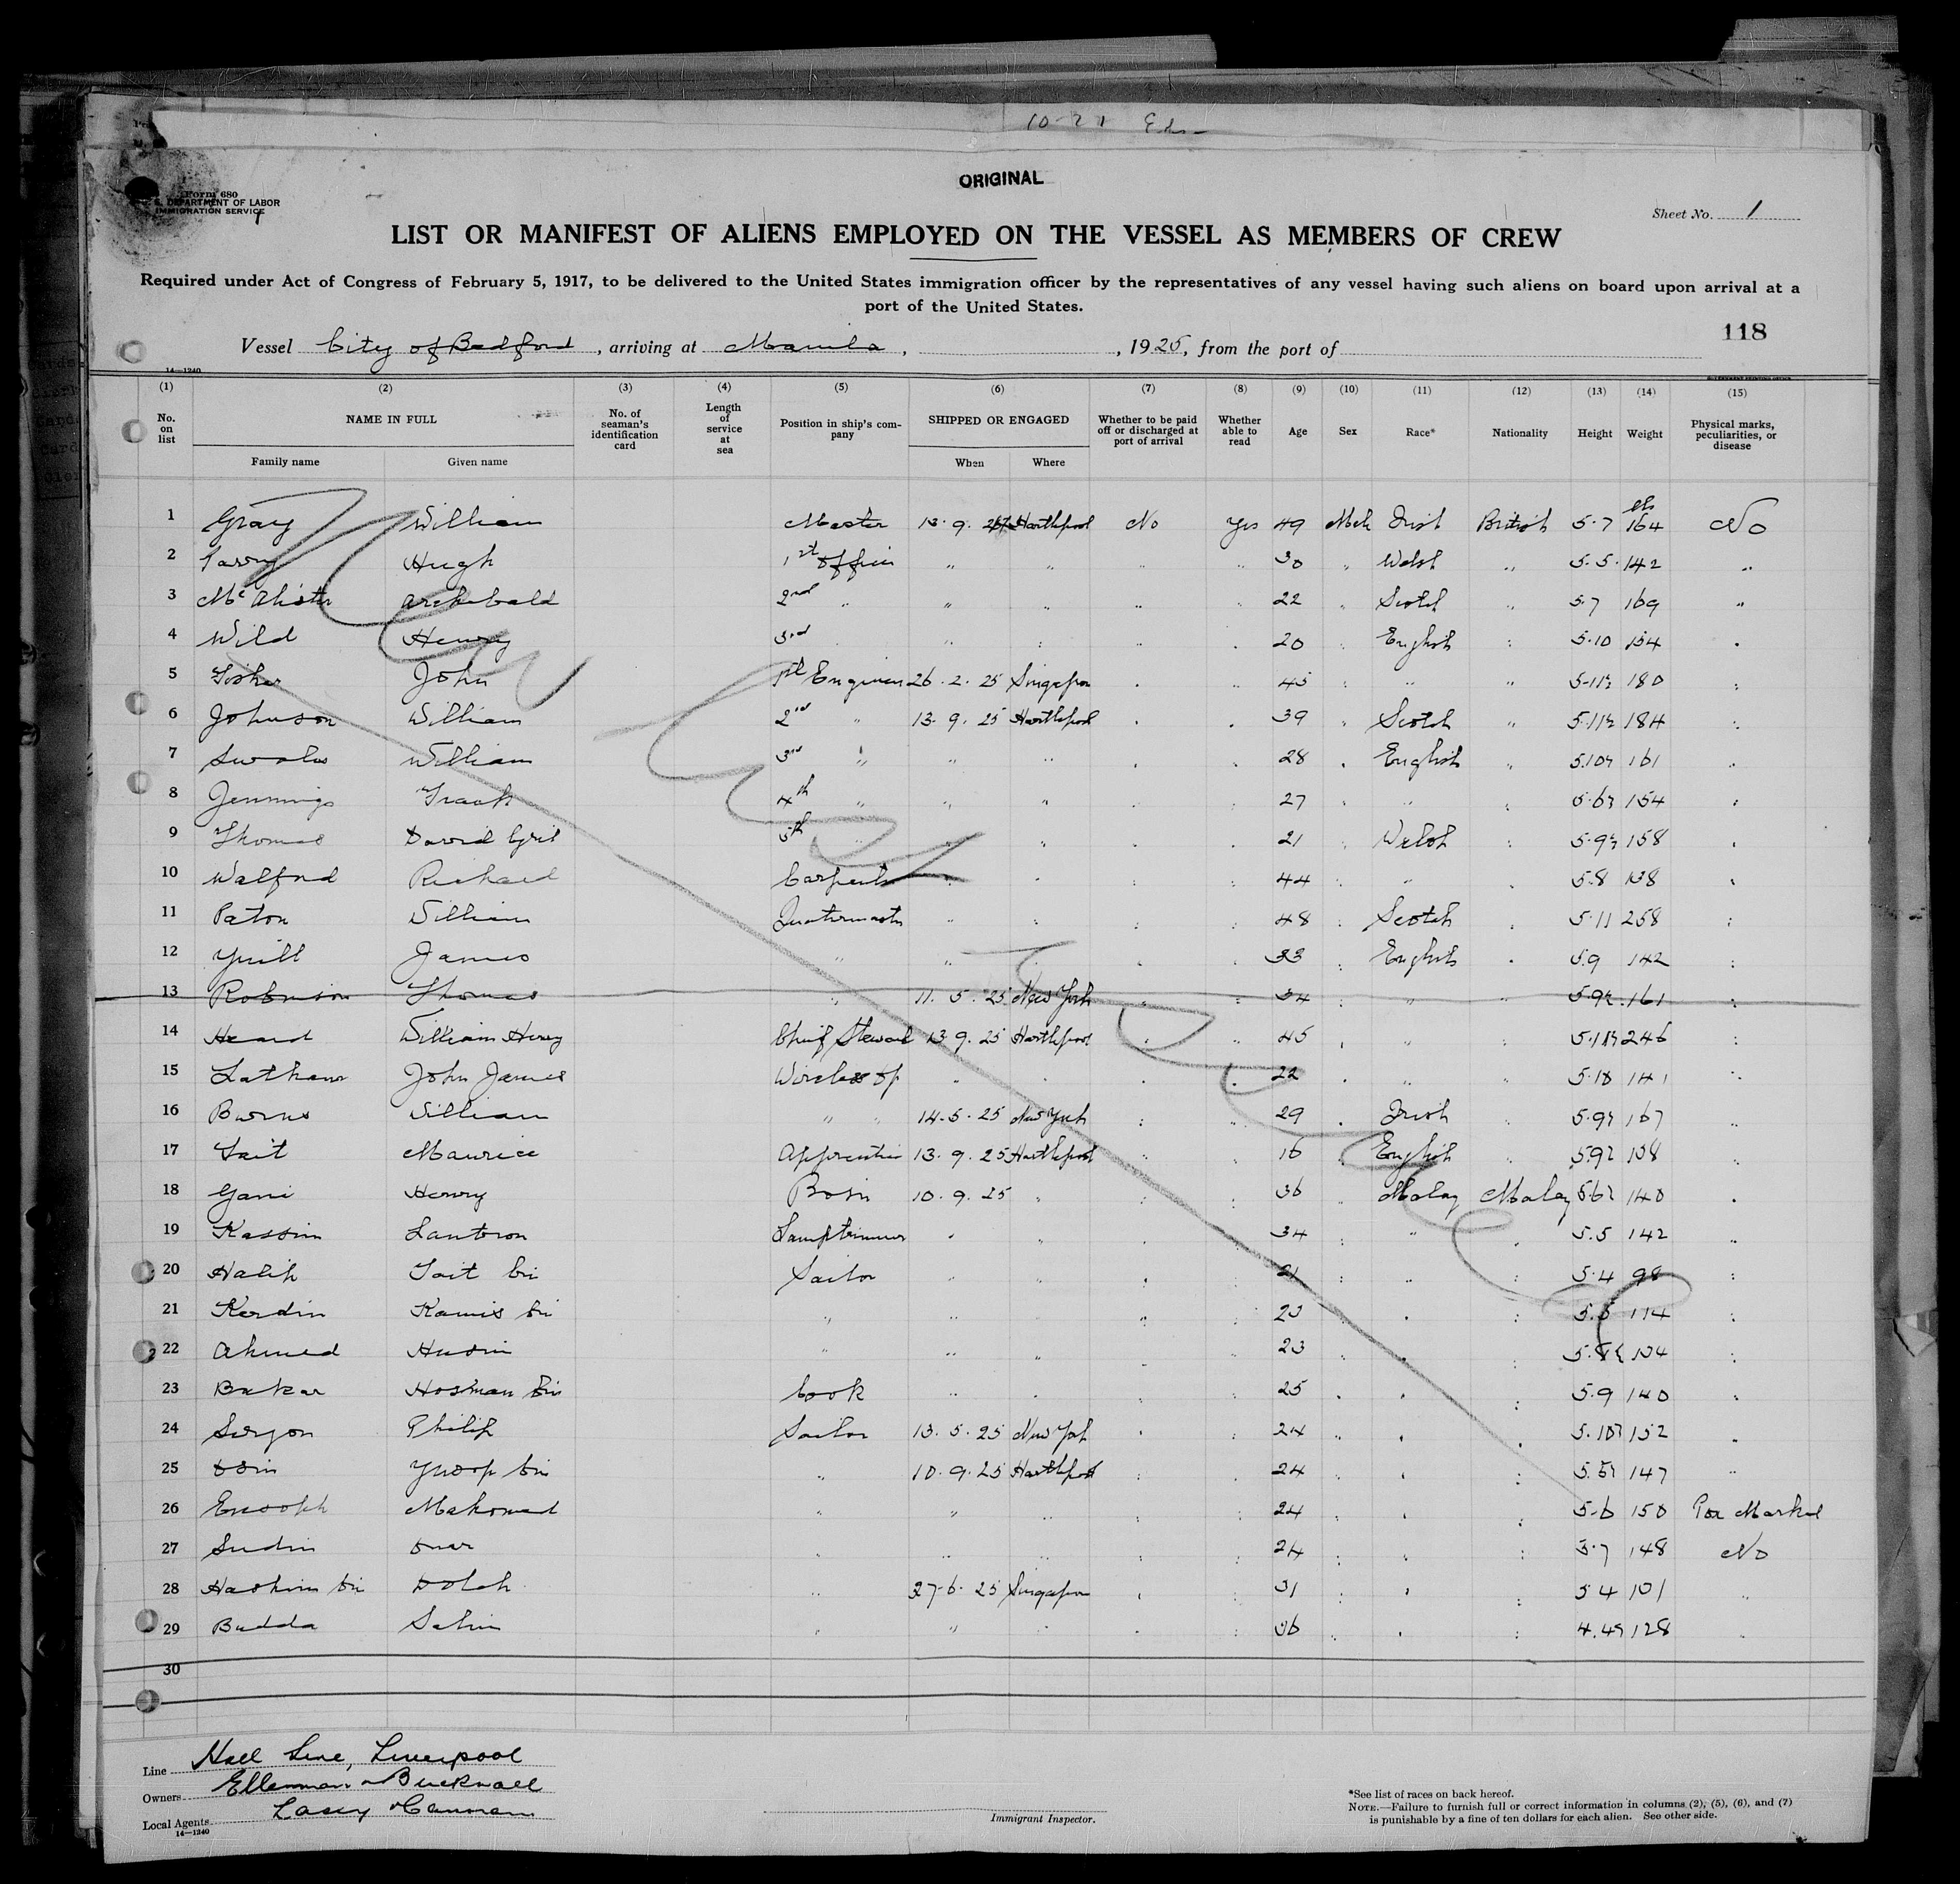 10-21
ORIGINAL
Form 680
U. S. DEPARTMENT OF LABOR
IMMIGRATION SERVICE
Sheet No. 1
LIST OR MANIFEST OF ALIENS EMPLOYED ON THE VESSEL AS MEMBERS OF CREW
Required under Act of Congress of February 5, 1917, to be delivered to the United States immigration officer by the representatives of any vessel having such aliens on board upon arrival at a
port of the United States.
118
Vessel City of Bedford, arriving at Manila, , 1925, from the port of
14—1240
(1) (2) (3) (4) (5) (6) (7) (8) (9) (10) (11) (12) (13) (14) (15)
No. on list NAME IN FULL No. of seaman's identification card Length of service at sea Position in ship's company SHIPPED OR ENGAGED Whether to be paid off or discharged at port of arrival Whether able to read Age Sex Race* Nationality Height Weight Physical marks, peculiarities, or disease
Family name Given name When Where
1 Gray William Master 13. 9. Harthpool No Yes 49 Male Irish British 5.7 164 No
2 Hugh 1st Officer " " " " 30 " Welsh " 5.5 142 "
3 McAlister Archibald 2nd " " " " " 22 " Scotch " 5.7 169 "
4 Wild Henry 3rd " " " " 20 " English " 5.10 154 "
5 Fisher John 1st Engineer 26. 2. 25 Singapore " " 45 " " " 5-11½ 180 "
6 Johnson William 2nd " 13. 9. 25 Harthpool " " 39 " Scotch " 5.11½ 184 "
7 Swales William 3rd " " " " " 28 " English " 5.10½ 161 "
8 Jennings Frank 4th " " " " " 27 " " " 5.6½ 154 "
9 Thomas David Cyril 5th " " " " " 21 " Welsh " 5.9½ 158 "
10 Walford Richard Carpenter " " " " 44 " " " 5.8 138 "
11 Paton William Quatermaster " " " " 48 " Scotch " 5.11 258 "
12 Yuill James " " " " " 33 " English " 5.9 142 "
13 Robinson Thomas " 11. 5. 25 New York " " 34 " " " 5.9½ 161 "
14 Heard William Henry Chief Steward 13 9. 25 Harthpool " " 45 " " " 5.11½ 246 "
15 Latham John James Wireless Op " " " " 22 " " " 5.10 141 "
16 Burns William " " 14-5. 25 New York " " 29 " Irish " 5.9½ 167 "
17 Tait Maurice Apprentice 13. 9. 25 Harthpool " " 16 " English " 5.9½ 138 "
18 Gani Henry Bosn 10. 9. 25 " " " 36 " Malay Malay 5.6½ 140 "
19 Kassim Lantron Lamptrimmer " " " " 34 " " " 5.5 142 "
20 Halip Tait bin Sailor " " " " 21 " " " 5.4 98 "
21 Kerdin Kamis bin " " " " " 23 " " " 5.5 114 "
22 Ahmed Husin " " " " " 23 " " " 134 "
23 Bakar Hosman bin Cook " " " " 25 " " " 5.9 140 "
24 Philip Sailor 13. 5. 25 New York " " 24 " " " 5.10½ 152 "
25 Yusop bin " 10. 9. 25 Harthpool " " 24 " " " 5.5½ 147 "
26 Mahomed " " " " " 24 " " " 5-6 150 Pox Marked
27 Sudin Omar " " " " " 24 " " " 5.7 148 No
28 Hashim bin Dolah " 27-6. 25 Singapore " " 31 " " " 5 4 101 "
29 Budda Salim " " " " " 36 " " " 4.4½ 128 "
30
Line Hall Line, Liverpool
Owners Ellerman & Bucknall
Local Agents
14—1240
Immigrant Inspector.
*See list of races on back hereof.
NOTE.—Failure to furnish full or correct information in columns (2), (5), (6), and (7)
is punishable by a fine of ten dollars for each alien. See other side.